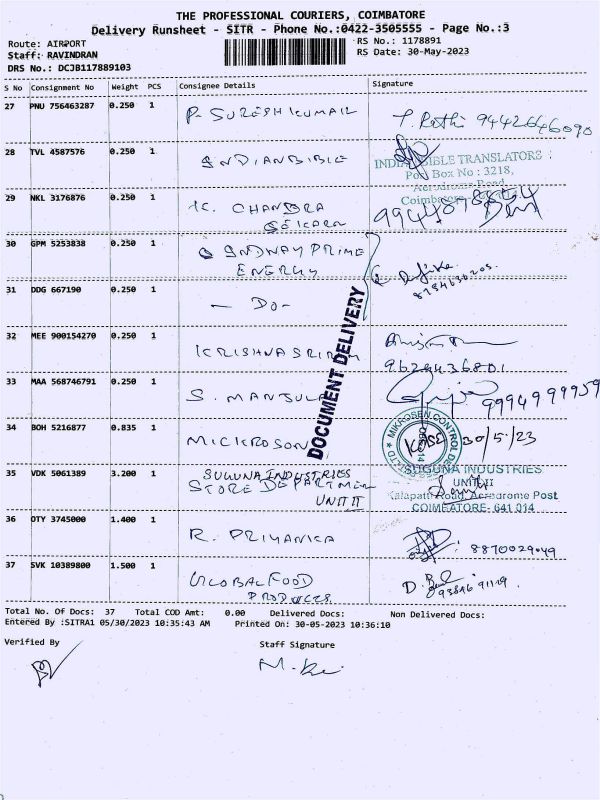 THE PROFESSIONAL COURIERS, COIMBATORE
Delivery Runsheet - SITR - Phone No.:0422-3505555 - Page No.:3
Route: AIRPORT RS No.: 1178891
Staff: RAVINDRAN RS Date: 30-May-2023
DRS No.: DCJB117889103
S No Consignment No Weight PCS Consignee Details Signature
27 PNU 756463287 0.250 1 P. SURESH KUMAR
9442646090
28 TVL 4587576 0.250 1 INDIAN BIBLE
INDIA BIBLE TRANSLATORS
Post Box No : 3218,
Aerodrome Road
29 NKL 3176876 0.250 1 K. CHANDRA
SEKARN
30 GPM 5253838 0.250 1 SNDWAY PRIME
ENERGY
31 DDG 667190 0.250 1 - Do -
32 MEE 900154270 0.250 1 KRISHNA
9629436801
33 MAA 568746791 0.250 1 S. MANSULA
9994999959
DOCUMENT DELIVERY
34 BOH 5216877 0.835 1 MICKROSON
MIKROSEN CONTROL
30/5/23
35 VDK 5061389 3.200 1 SUGUNA INDUSTRIES
STORE DEPARTMEN
UNIT II
SUGUNA INDUSTRIES
UNIT II
Kalapatti Road, Aerodrome Post
COIMBATORE- 641 014
36 OTY 3745000 1.400 1 R. PRIYANKA 8870029049
37 SVK 10389800 1.500 1 GLOBAL FOOD
PRODUCES
Total No. Of Docs: 37 Total COD Amt: 0.00 Delivered Docs: Non Delivered Docs:
Entered By :SITRA1 05/30/2023 10:35:43 AM Printed On: 30-05-2023 10:36:10
Verified By Staff Signature